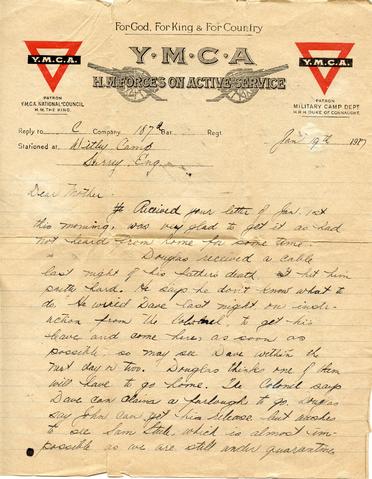 For God, For King & For Country
Y.M.C.A.
Y.M.C.A
Y.M.C.A.
H.M. FORCES ON ACTIVE SERVICE
PATRON
Y.M.C.A. NATIONAL COUNCIL
H.M. THE KING.
PATRON
MILITARY CAMP DEPT.
H.R.H. DUKE OF CONNAUGHT.
Reply to C Company 187th Bat. Regt.
Jan 19th 1917
Stationed at Witley Camp
Surry, Eng.
Dear Mother.
Received your letter of Jan. 1st
this morning, was very glad to get it as had
not heard from home for some time.
Douglas received a cable
last night of his father's death. It hit him
pretty hard. He says he don't know what to
do. He wired Dave last night on inst-
ruction from the Colonel to get his
leave and come here, as soon as
possible, so may see Dave within the
next day or two. Douglas thinks one of them
will have to go home. The Colonel says
Dave can claim a furlough to go. Douglas
say John can get his release but wishes
to see Sam Steele, which is almost im-
possible as we are still under quarantine